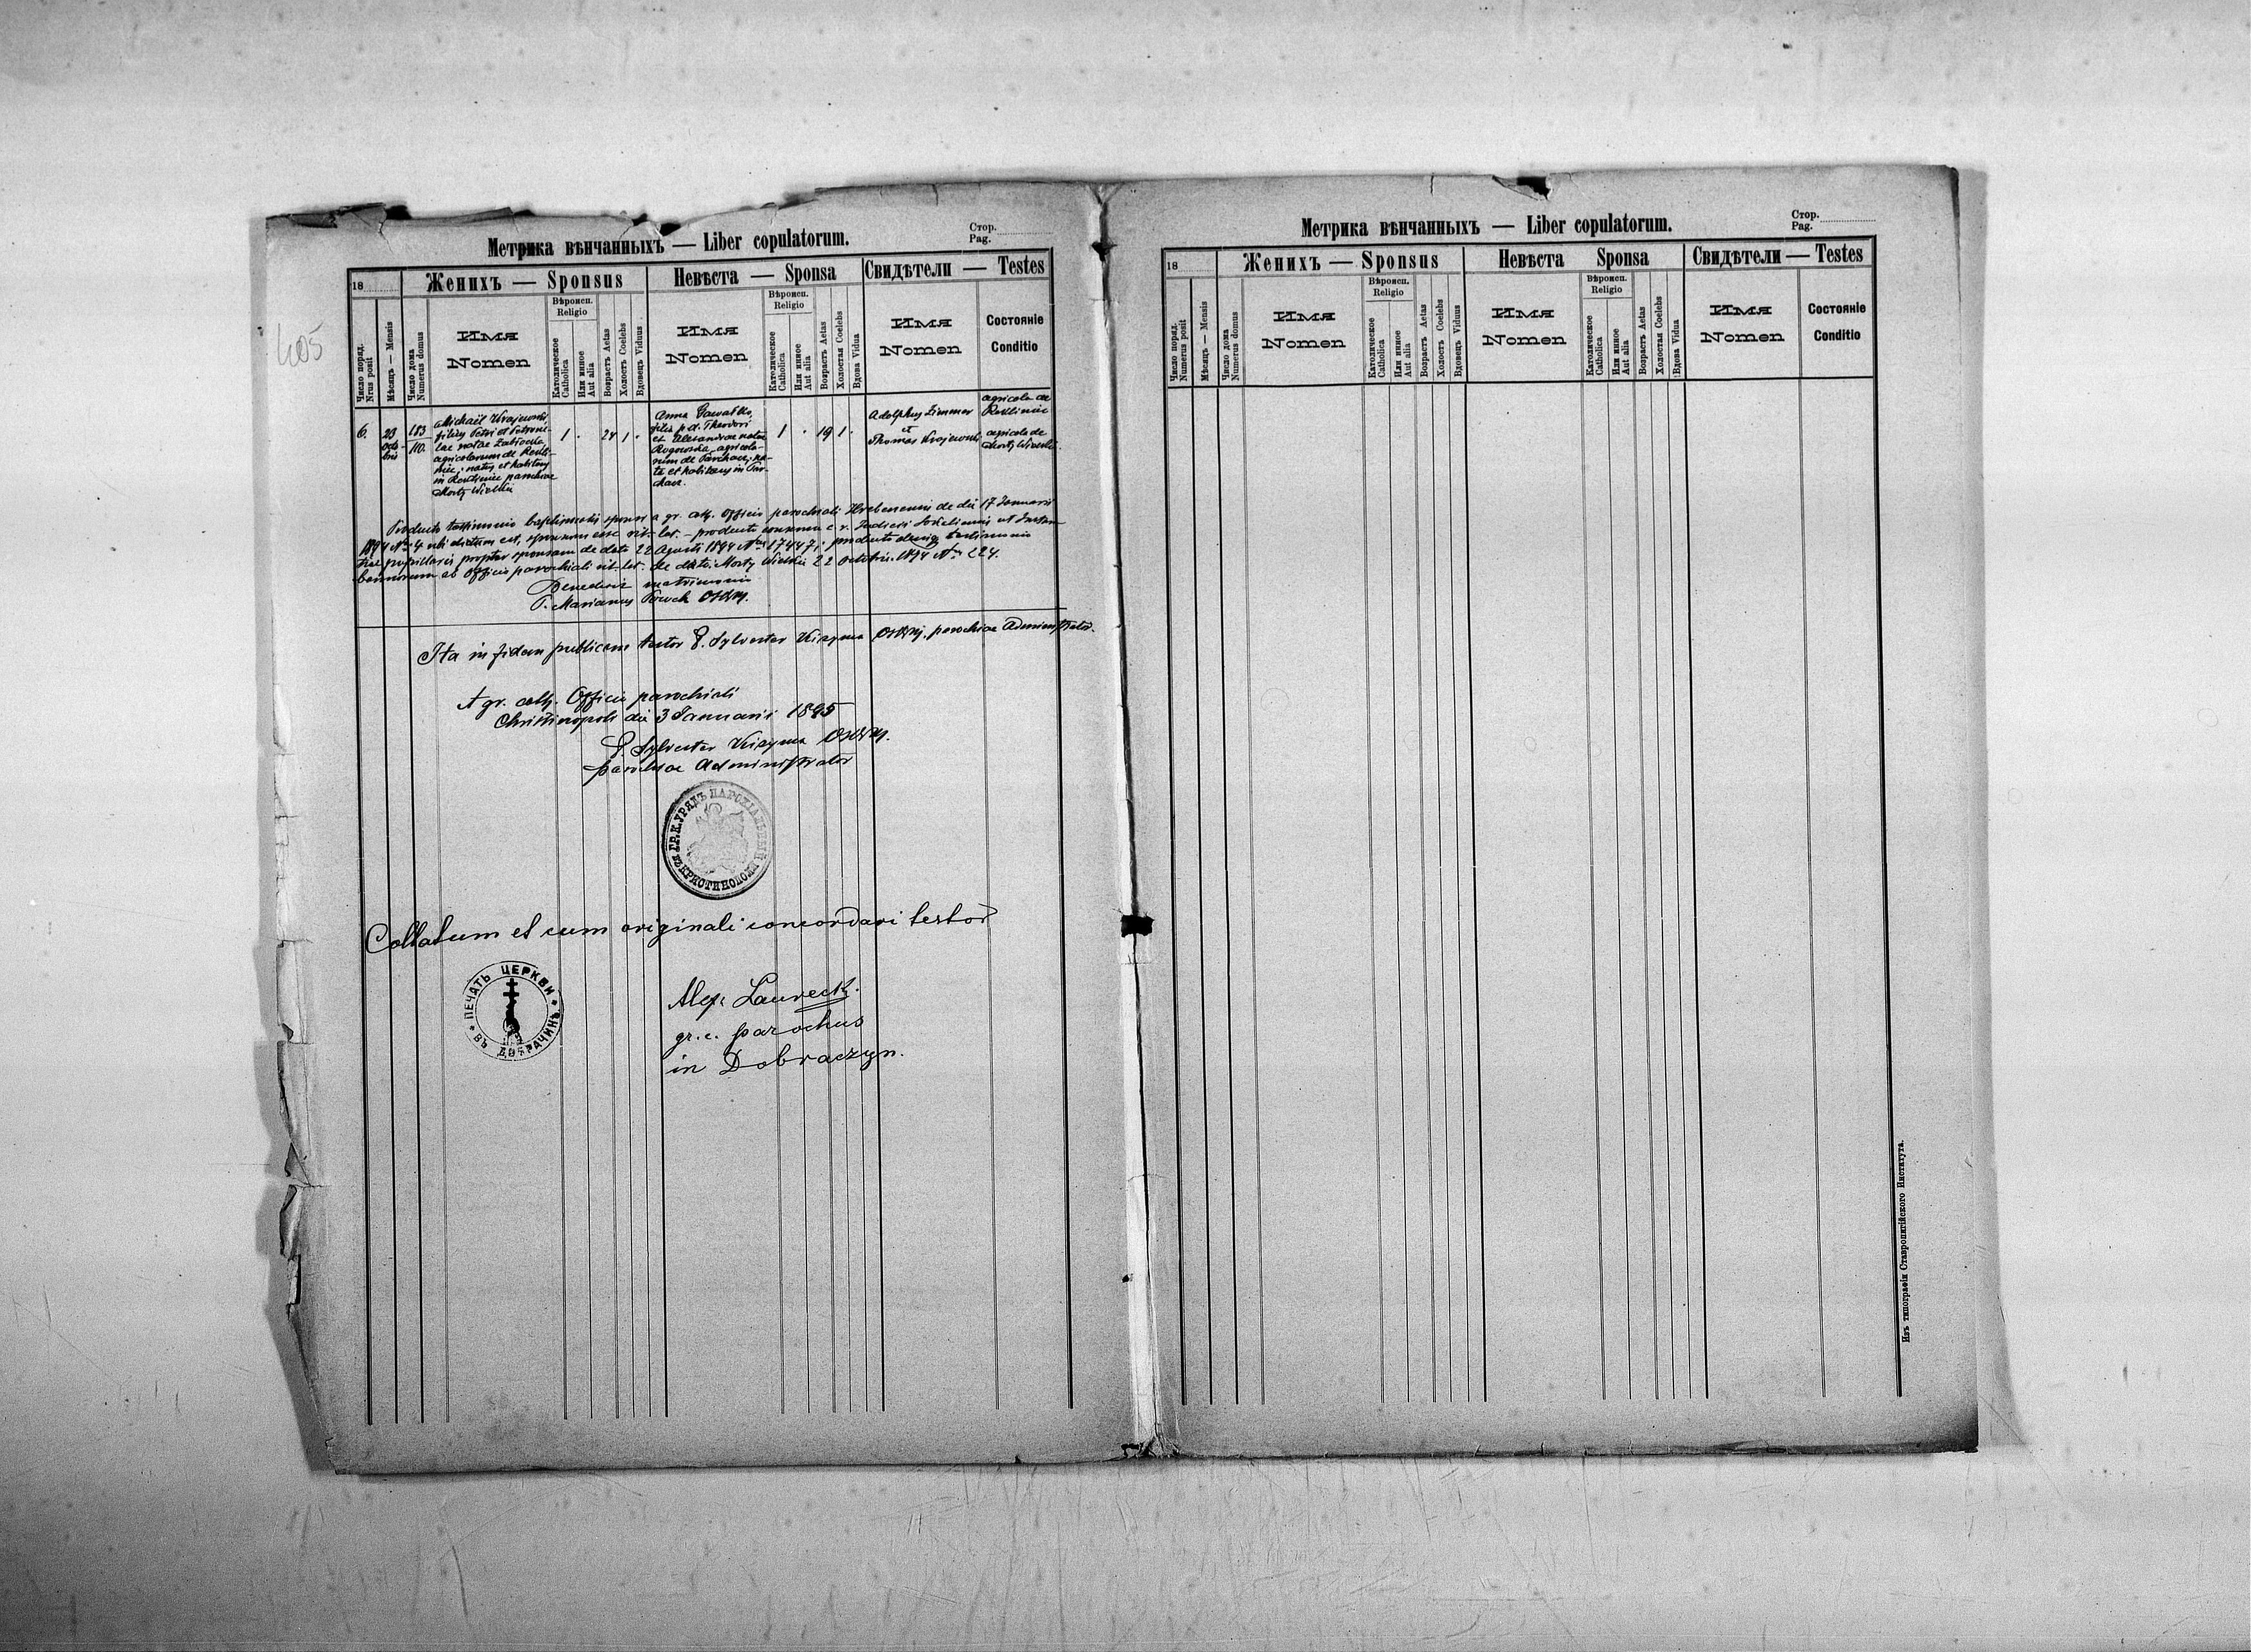 405
Метрика вѣнчанныхъ — Liber copulatorum.
Стор.
Pag.
18
Женихъ — Sponsus
Невѣста — Sponsa
Свидѣтели — Testes
Число поряд.
Nrus posit
Мѣсяцъ — Mensis
Число дома
Numerus domus
Имя
Nomen
Вѣроисп.
Religio
Католическое
Catholica
Или инное
Aut alia
Возрастъ Aetas
Холостъ Coelebs
Вдовецъ Viduus
Имя
Nomen
Вѣроисп.
Religio
Католическое
Catholica
Или инное
Aut alia
Возрастъ Aetas
Холостая Coelebs
Вдова Vidua
Имя
Nomen
Состояніе
Conditio
6.
23
octo-
bris
183
110.
Michaël Krajewski
filius Petri et Petroni-
lae natae
agricolarum de Rekli-
niec, natus et habitans
in Rekliniec parochiae
Mosty Wielkie
1 . 24 1 .
Anna Gawałko,
filia p. d. Theodori
et Alexandrae natae
Rogowska, agricola-
rum de Parchacz, na-
ta et habitans in Par-
chacz.
1 . 19 1 .
Adolphus Zimmer
et
Thomas Krajewski
agricola de
Rekliniec
agricola de
Mosty Wielkie.
Producto testimonio baptismatis sponsi a gr. cath. Officio parochiali de die 17 Januarii
1894 Nro 4 ubi dictum est, sponsum esse rit. lat. – producto consensu c. r. Judicii Sokaliensis ut Instan-
tiae pupillaris propter sponsam de dato 22 Agusti 1894 Nro 17447; producto denique testimonio
bannorum ab Officio parochiali rit. lat. de dato Mosty Wielkie 22 Octobris 1894 Nro 224.
Benedixit matrimonium
P. Marianus OSBM.
Ita in fidem publicam testor P. Sylvester Kizyma OSBM. parochiae Administrator.
A gr. cath. Officio parochiali
Christinopoli die 3 Januarii 1895
P. Sylvester Kizyma OSBM.
parochiae Administrator
ГР.К. УРЯДЪ ПАРОХІАЛЬНЫЙ
въ КРИСТИНОПОЛИ
Collatum et cum originali concordari testor
ПЕЧАТЬ ЦЕРКВИ
ВЪ ДОБРАЧИНѢ
Alex. Laurecki.
gr. c. parochus
in Dobraczyn.
Метрика вѣнчанныхъ — Liber copulatorum.
Стор.
Pag.
18
Женихъ — Sponsus
Невѣста Sponsa
Свидѣтели — Testes
Число поряд.
Numerus posit
Мѣсяцъ — Mensis
Число дома
Numerus domus
Имя
Nomen
Вѣроисп.
Religio
Католическое
Catholica
Или инное
Aut alia
Возрастъ Aetas
Холостъ Coelebs
Вдовецъ Viduus
Имя
Nomen
Вѣроисп.
Religio
Католическое
Catholica
Или инное
Aut alia
Возрастъ Aetas
Холостая Coelebs
Вдова Vidua
Имя
Nomen
Состояніе
Conditio
Изъ типографіи Ставропигійского Института.